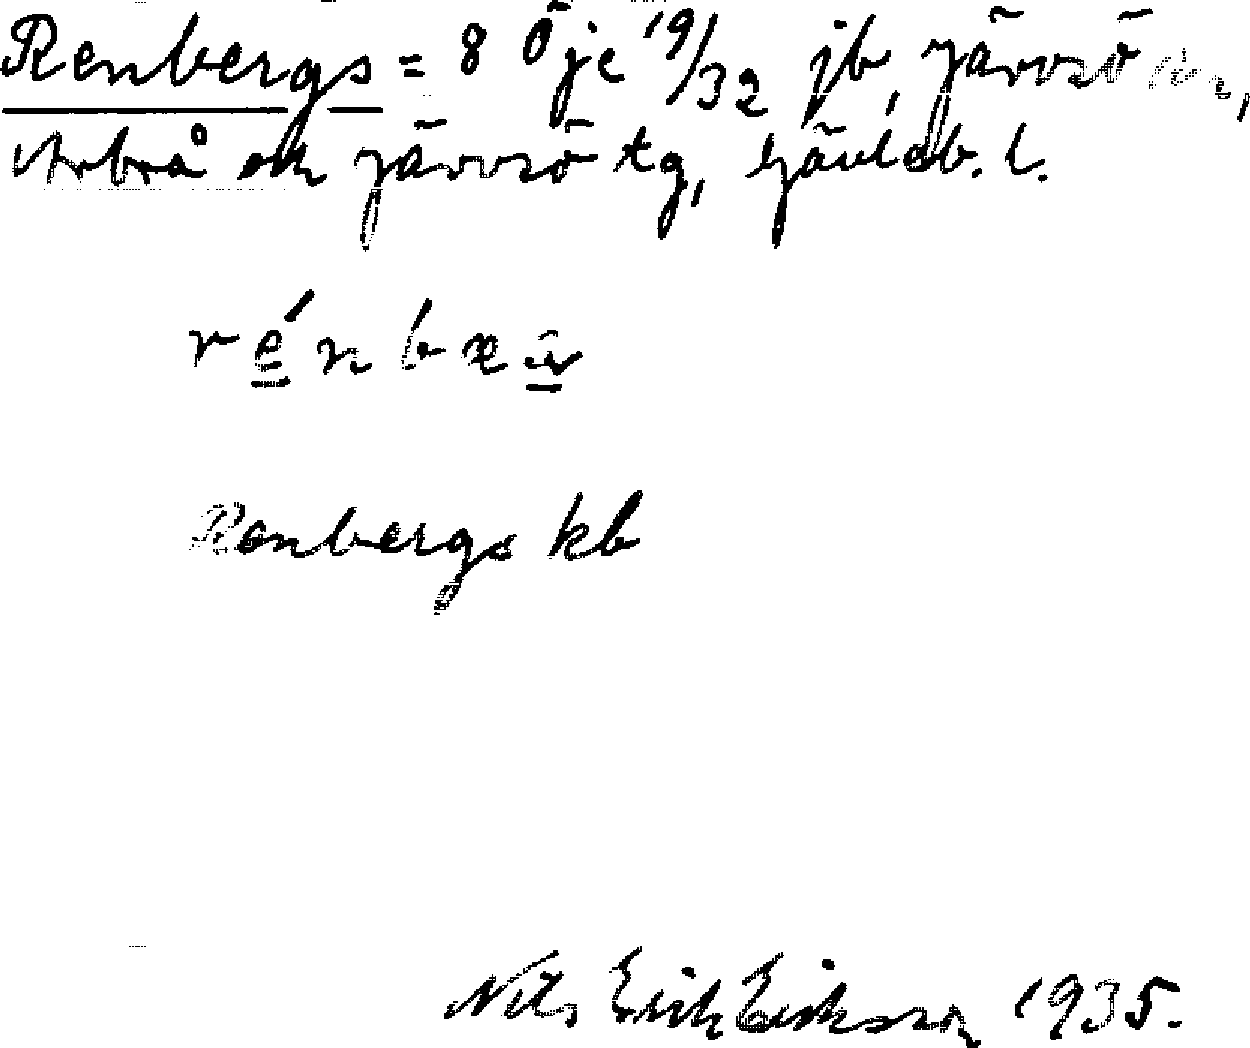 Renbergs = 8 Öje 19/32 jb, Järvsö sn,
Arbrå och Järvsö tg, Gävleb. l.
rénbæ
Renbergs kb
Nils Erik Eriksson 1935.